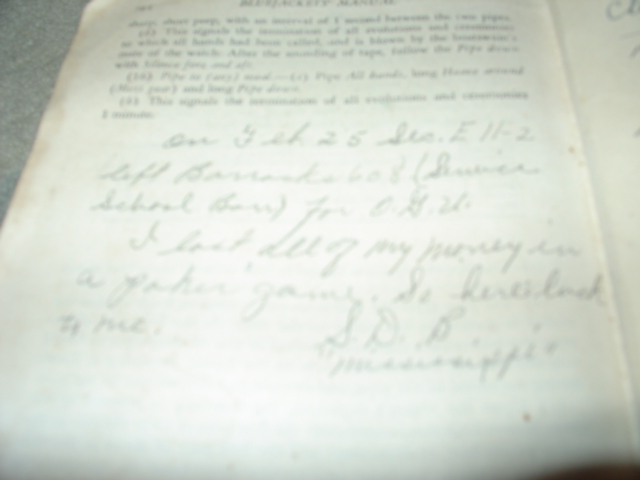 BLUEJACKETS' MANUAL
sharp, short peep, with an interval of 1 second between the two pipes.
(d) This signals the termination of all evolutions and ceremonies
to which all hands had been called, and is blown by the boatswain's
mate of the watch. After the sounding of taps, follow the Pipe down
with Silence fore and aft.
(16) Pipe to (any) mess.—(c) Pipe All hands, long Heave around
(Mess gear) and long Pipe down.
(d) This signals the termination of all evolutions and ceremonies
1 minute.
On Feb 25 Sec. E 11-2
left Barracks 608 (Service
School Barr) for O.G.U.
I lost all of my money in
a poker game. So here's luck
to me.
S. D. B
"Mississippi"